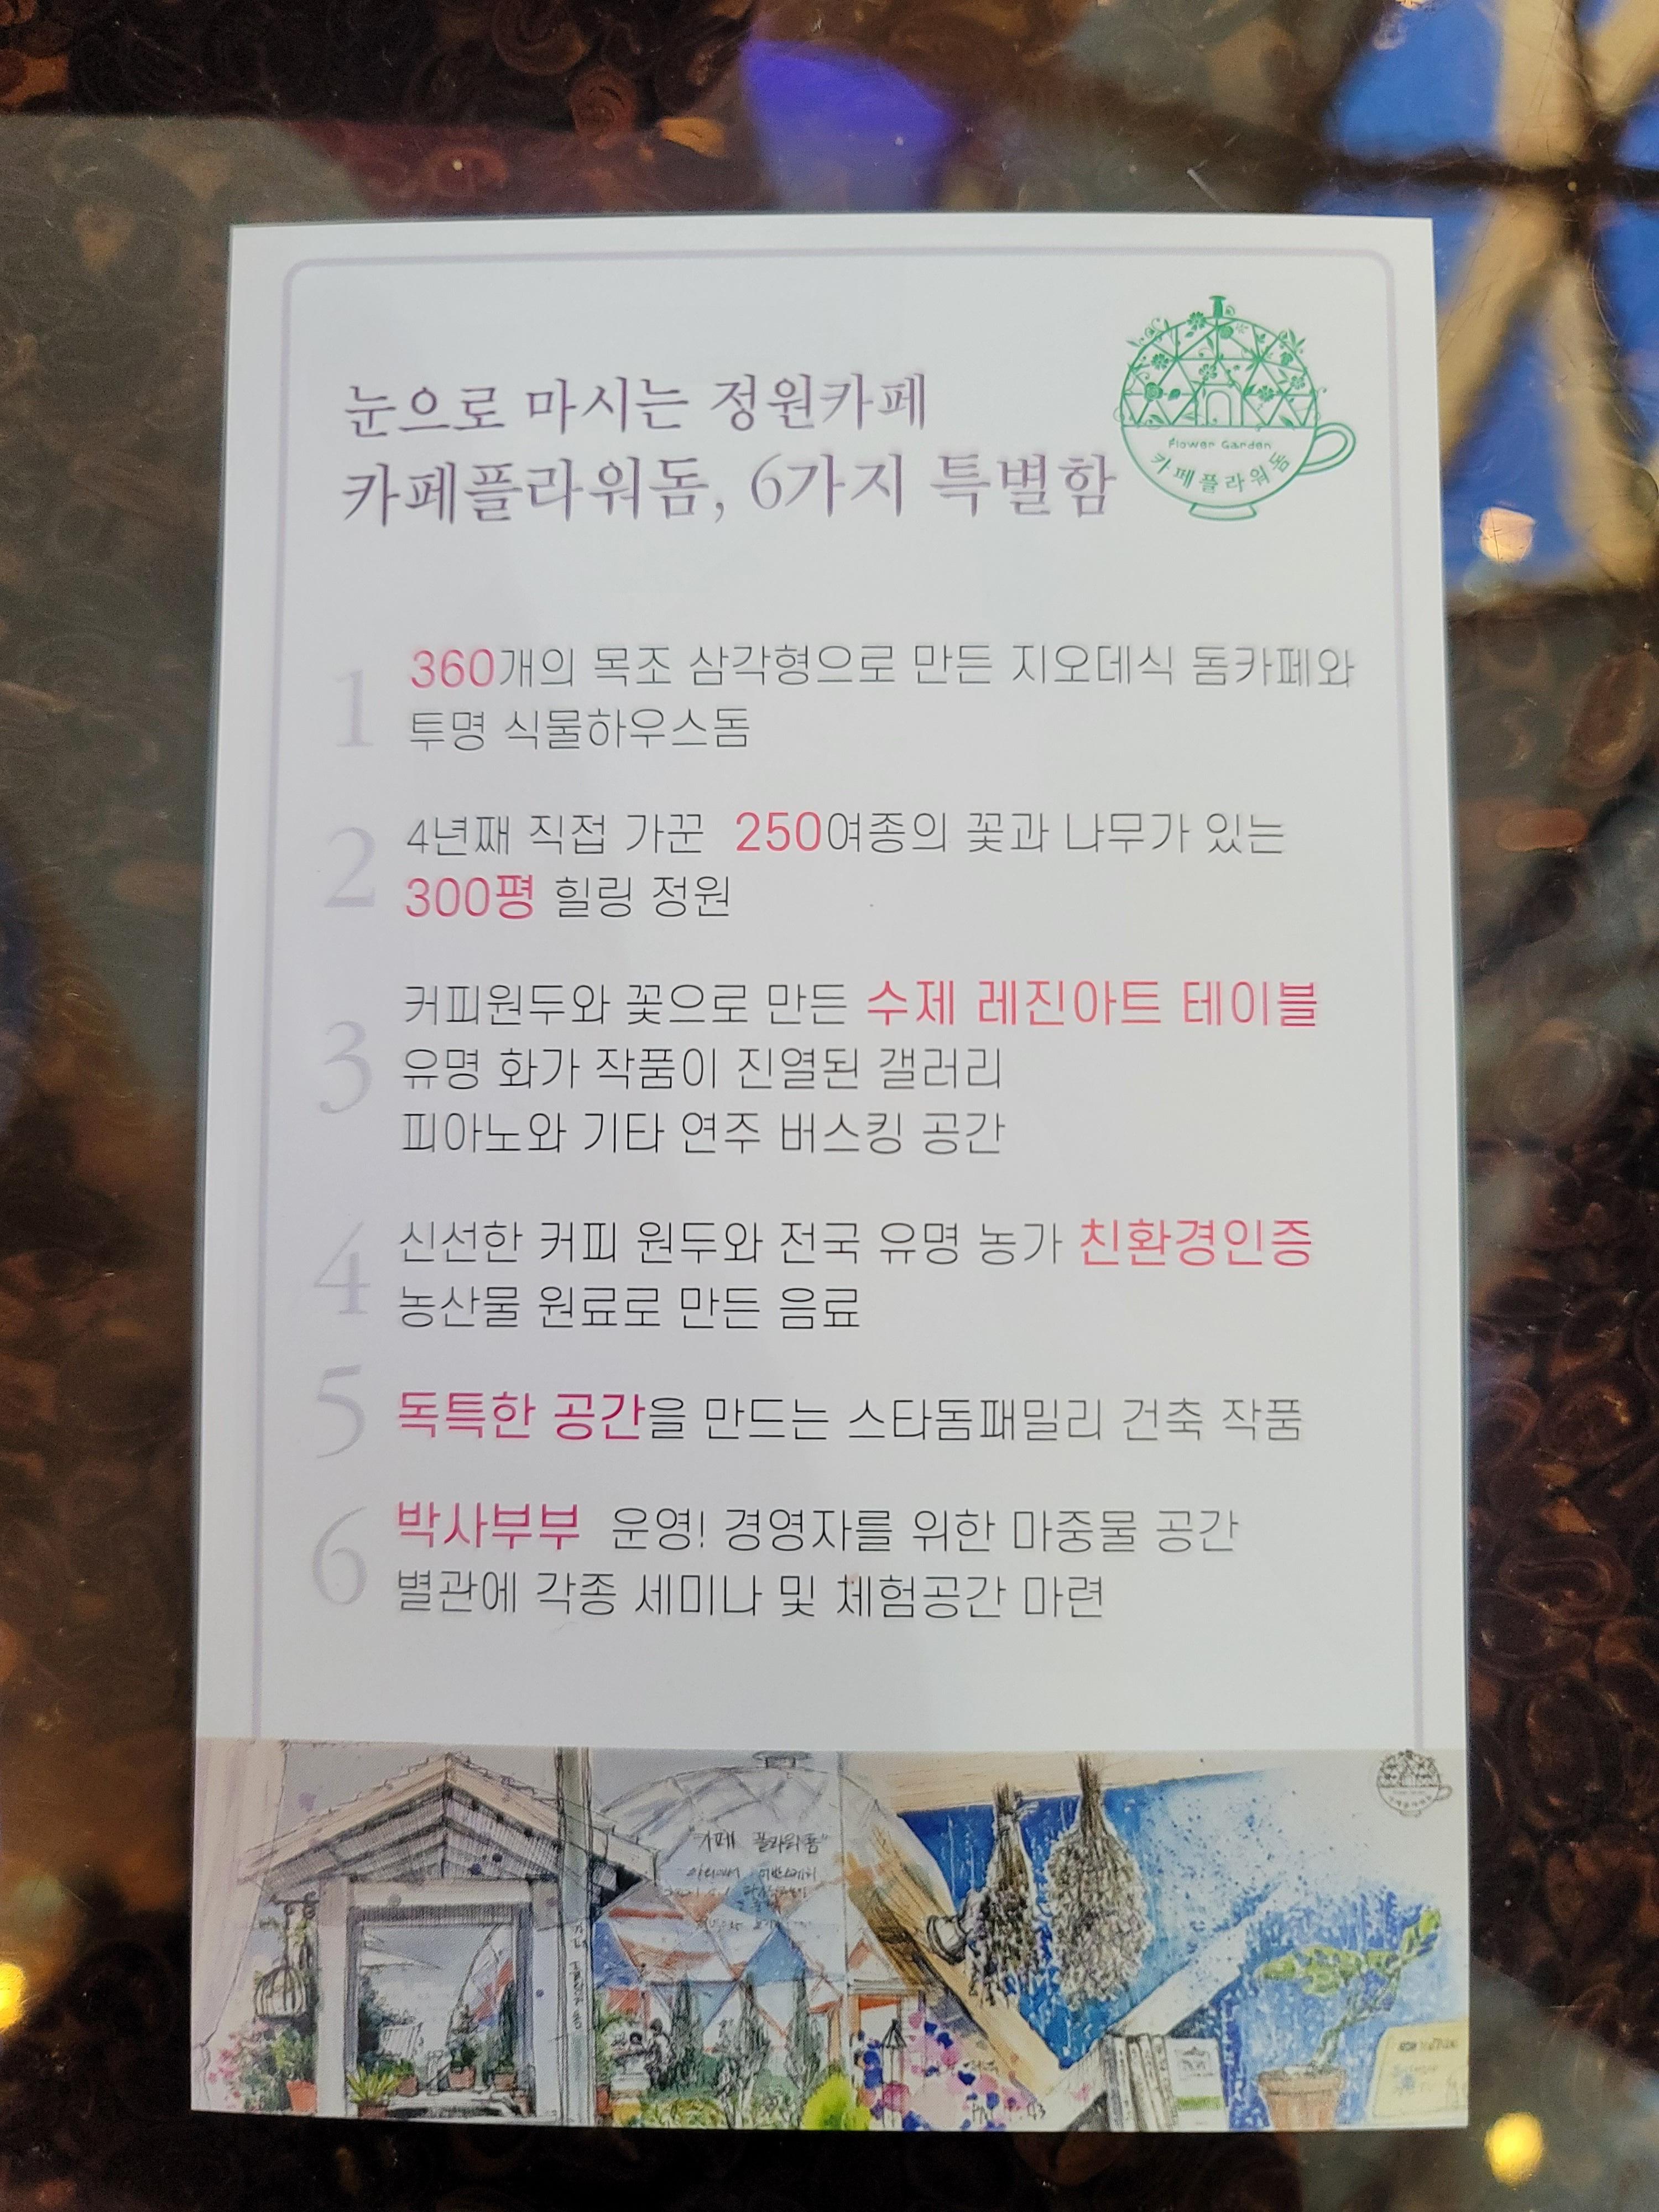 눈으로 마시는 정원카페
카페플라워돔, 6가지 특별함
Flower Garden
카페플라워돔
1
360개의 목조 삼각형으로 만든 지오데식 돔카페와
투명 식물하우스돔
2
4년째 직접 가꾼 250여종의 꽃과 나무가 있는
300평 힐링 정원
3
커피원두와 꽃으로 만든 수제 레진아트 테이블
유명 화가 작품이 진열된 갤러리
피아노와 기타 연주 버스킹 공간
4
신선한 커피 원두와 전국 유명 농가 친환경인증
농산물 원료로 만든 음료
5
독특한 공간을 만드는 스타돔패밀리 건축 작품
6
박사부부 운영! 경영자를 위한 마중물 공간
별관에 각종 세미나 및 체험공간 마련
"카페 플라워돔"